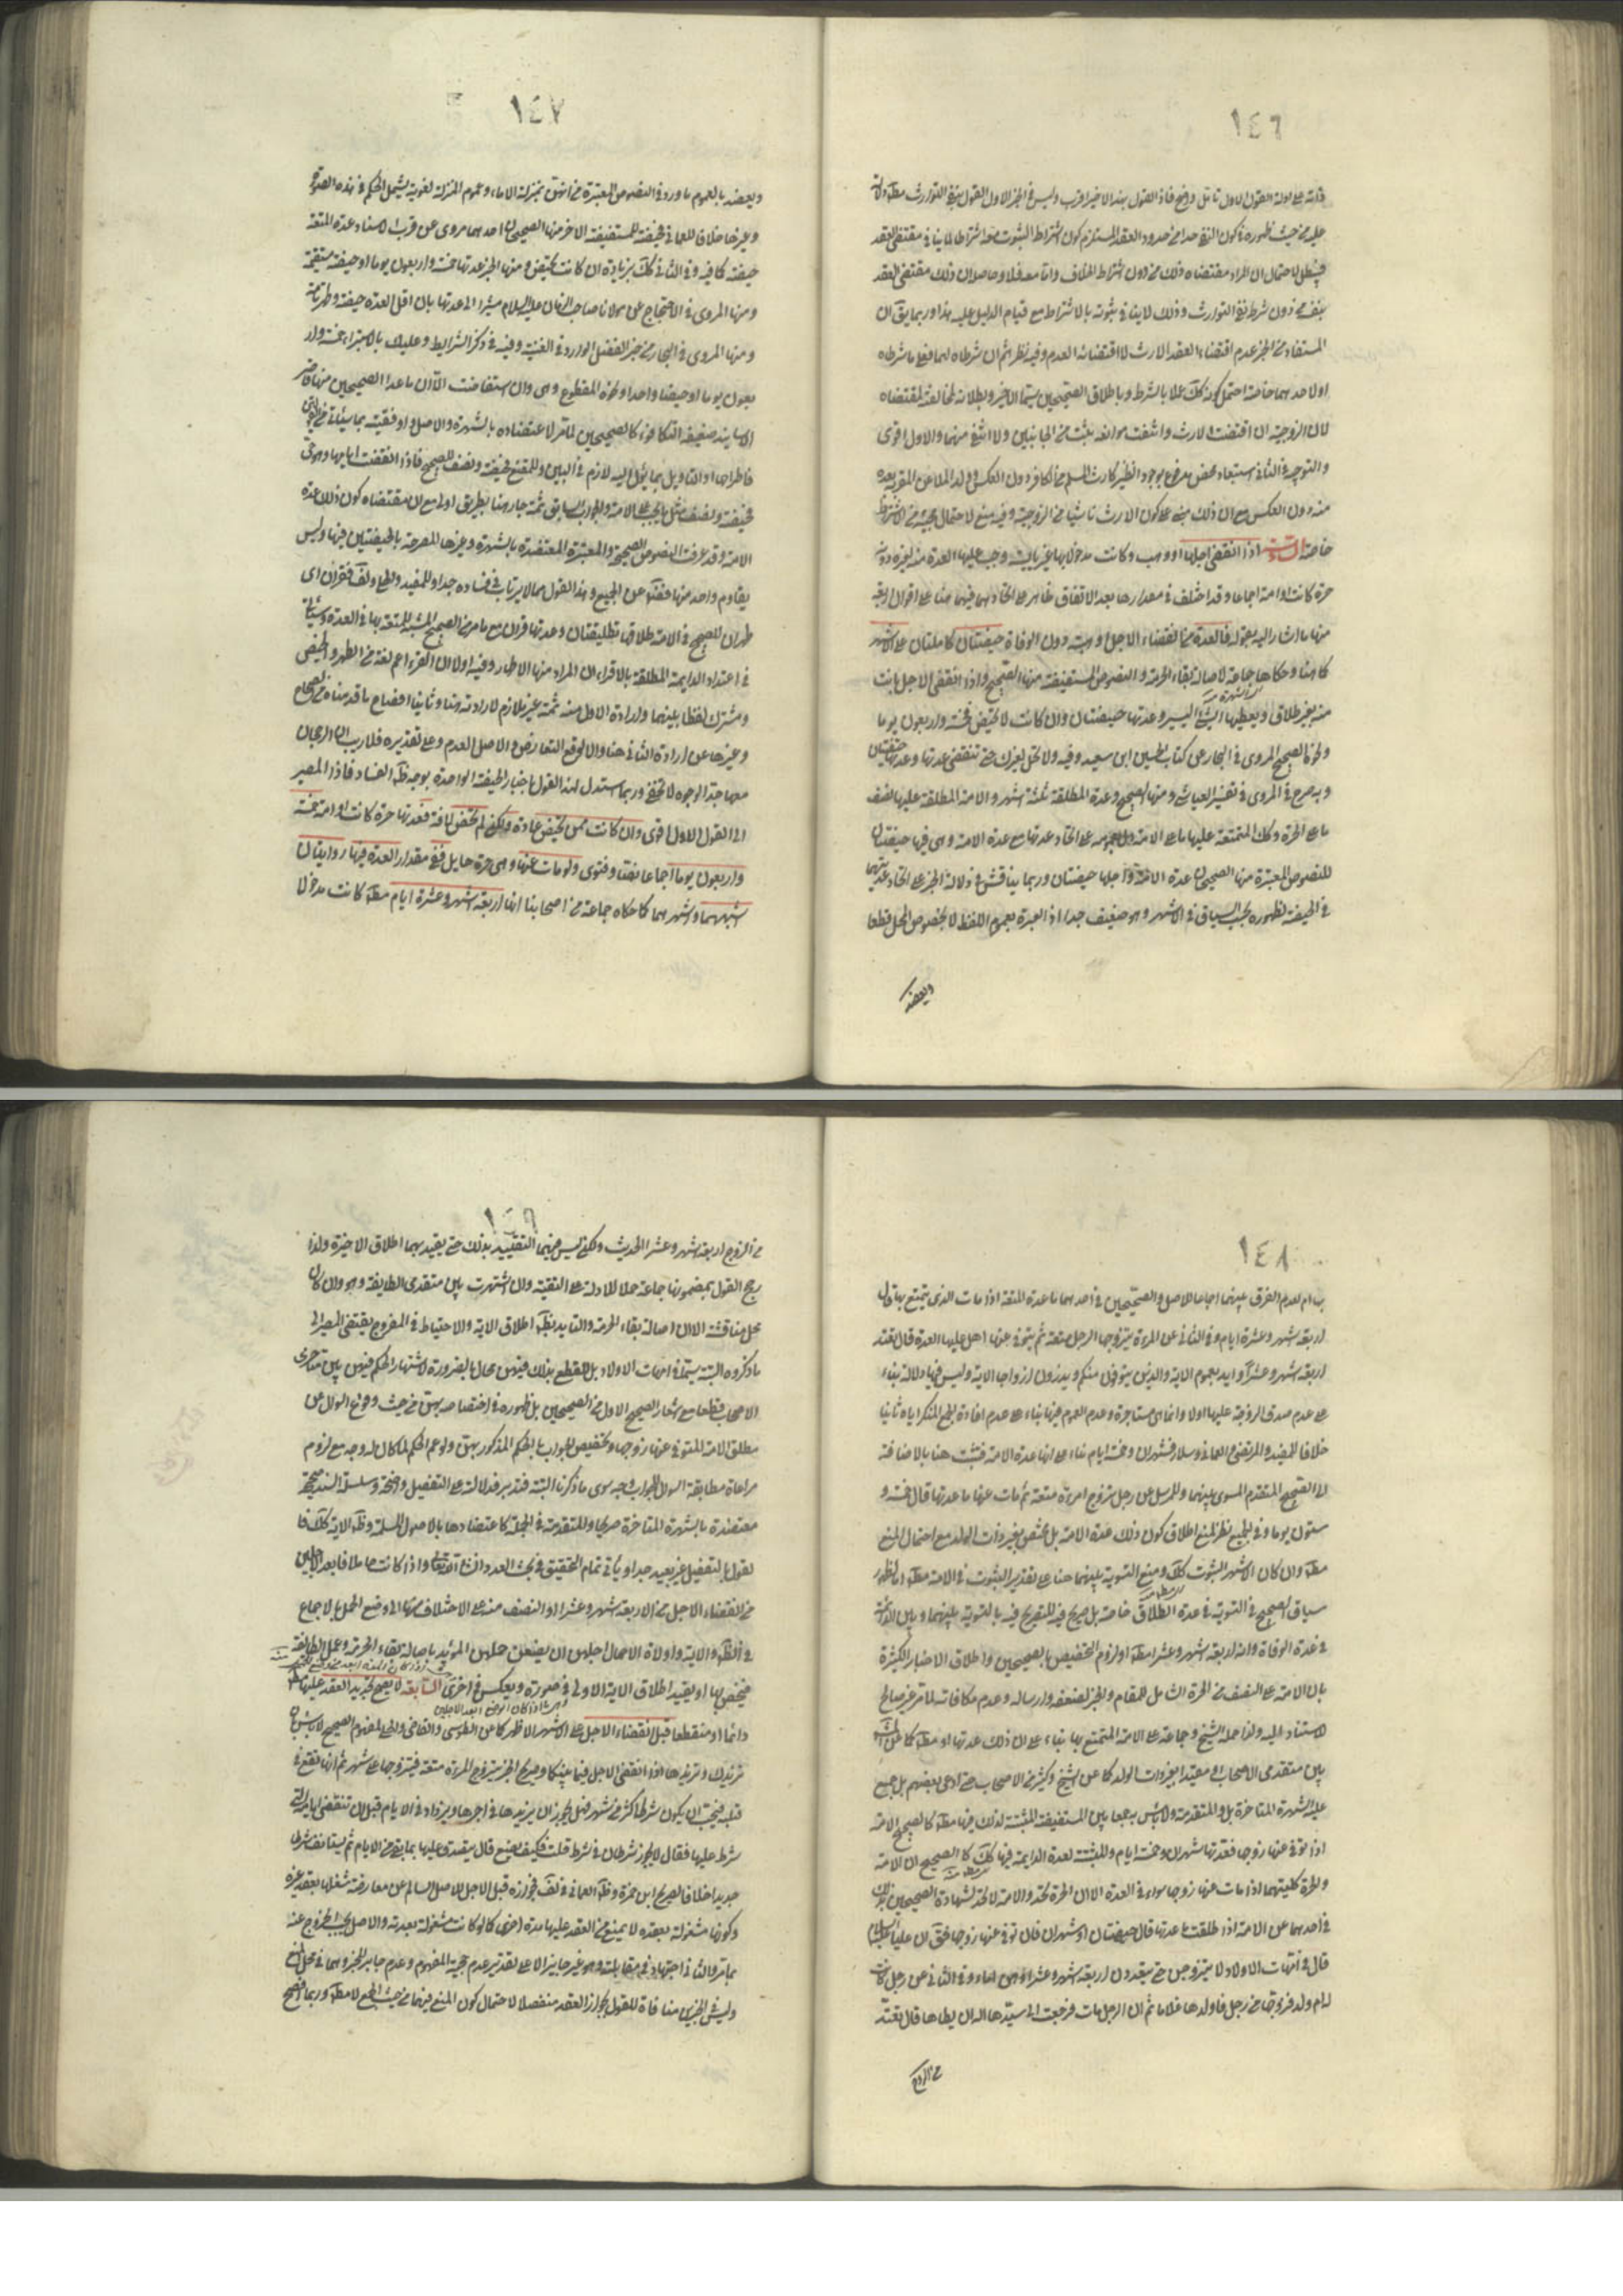 ١٤٦
عليه من حيث ظهوره في كون النفي حدا من حدود العقد المستلزم كون اشتراط الثبوت معه اشتراطا لما ينافي مقتضى العقد
فيبطل لاحتمال ان المراد مقتضاه ذلك من دون اشتراط الخلاف واما معه فلا وحاصله ان ذلك مقتضى العقد
بنفسه من دون شرط نفي التوارث وذلك لا ينافي ثبوته بالاشتراط مع قيام الدليل عليه هذا وربما يق ان
المستفاد من الخبر عدم اقتضاء العقد الارث لا اقتضائه العدم وفيه نظر ثم ان شرطاه لهما فعلى ما شرطاه
اولاحدهما خاصة احتمل كونه كك عملا بالشرط وباطلاق الصحيحين سيما الاخير وبطلانه لمخالفته لمقتضاه
لان الزوجية ان اقتضت الارث وانتفت موانعه يثبت من الجانبين والا انتفى منهما والاول اقوى
والتوجيه في الثاني استبعاد محض مدفوع بوجود النظير كارث المسلم من الكافر دون العكس وولد الملاعن المقر به بعده
منه دون العكس مع ان ذلك مبني على كون الارث ناشيا من الزوجية وفيه منع لاحتمال مجيئه من الاشتراط
خاصة السادسة اذا انقضى اجلها او وهب وكانت مدخولا بها غير يائسة وجب عليها العدة منه لغيره دونه
حرة كانت او امة اجماعا وقد اختلف في مقدارها بعد الاتفاق ظاهرا على اتحادهما فيهما هنا على اقوال اربعة
منها ما اشار اليه بقوله فالعدة من انقضاء الاجل او هبته دون الوفاة حيضتان كاملتان على الاشهر
كما هنا وحكاها جماعة لاصالة بقاء الحرمة والنصوص المستفيضة منها الصحيح واذا انقضى الاجل بانت
منه بغير طلاق ويعطيها الشئ اليسير وعدتها حيضتان وان كانت لا تحيض فخمسة واربعون يوما
ونحوه الصحيح المروي في البحار عن كتاب الحسين ابن سعيد وفيه ولا تحل لغيرك حتى تنقضي عدتها وعدتها حيضتان
وبه صرح في المروي في تفسير العياشي ومنها الصحيح وعدة المطلقة ثلثة اشهر والامة المطلقة عليها نصف
ما على الحرة وكك المتمتعة عليها ما على الامة دل بعمومه على اتحاد عدتها مع عدة الامة وهي فيها حيضتان
للنصوص المعتبرة منها الصحيحان عدة الامة واجلها حيضتان وربما يناقش في دلالة الخبر على اتحاد عدتيهما
في الحيضة لظهوره بحسب السياق في الاشهر وهو ضعيف جدا اذ العبرة بعموم اللفظ لا بخصوص المحل قطعا
ويعضد
١٤٧
ويعضد بالعموم ما ورد في النصوص المعتبرة من انهن بمنزلة الاماء وعموم المنزلة لغويه يشمل الحكم في هذه الصورة
وغيرها خلافا للعماني فحيضة للمستفيضة الاخر منها الصحيحان احدهما مروي عن قرب الاسناد عدة المتعة
حيضة كافيه وفي الثاني كك بزيادة ان كانت تحيض ومنها الخبر عدتها خمسة واربعون يوما او حيضة مستقيمة
ومنها المروي في الاحتجاج عن مولانا صاحب الزمان عليه السلام مشيرا الى عدتها بان اقل العدة حيضة وطهر تامة
ومنها المروي في البحار من خبر المفضل الوارد في الغيبة وفيه في ذكر الشرايط وعليك بالاستبراء خمسة وار
بعون يوما او حيضا واحدا ونحوه المقطوع وهي وان استفاضت الا ان ما عدا الصحيحين منها قاصر
الاسانيد ضعيفة التكافؤ كالصحيحين لما مر لاعتضاده بالشهرة والاصل واوفقيته بما سيأتي
فاطراحها او التاويل بما يؤل اليه لازم في البين وللمقنع فحيضة ونصف للصحيح فاذا انقضت ايامها وهو حي
فحيضة ونصف مثل ما يجب على الامة والجواب السابق ثمة جار هنا بطريق اولى مع ان مقتضاه كون ذلك عدة
الامة وقد عرفت النصوص الصحيحة والمعتبرة المعتضدة بالشهرة وغيرها المصرحة بالحيضتين فيها وليس
يقاوم واحد منها فضلا عن الجميع وهذا القول مما لا يرتاب في فساده جدا وللمفيد والحلي ولف فقران اي
طهران للصحيح في الامة طلاقها تطليقتان وعدتها قران مع ما مر من الصحيح المشبه للمتعة بها في العدة وسيأتي
في اعتداد الدايمة المطلقة بالاقراء ان المراد منها الاطهار وفيه اولا ان القرء اعم لغة من الطهر والحيض
ومشترك لفظا بينهما وارادة الاول منه ثمة غير ملازم لارادته هنا وثانيا افصاح ما قدمناه من الصحاح
وغيرها عن ارادة الثاني هنا والا لوقع التعارض والاصل العدم وعلى تقديره فلا ريب ان الرجحان
معها جدا لوجوه لا تخفى وربما استدل لهذا القول باخبار الحيضة الواحدة بوجه ظ الفساد فاذا المصير
الى القول الاول اقوى وان كانت ممن تحيض عادة ولكن لم تحض لافة فعدتها حرة كانت او امة خمسة
واربعون يوما اجماعا نصا وفتوى ولو مات عنها وهي حرة حايل ففي مقدار العدة فيها روايتان
اشبههما واشهرهما كما حكاه جماعة من اصحابنا انها اربعة اشهر وعشرة ايام مطلقا كانت مدخولا
١٤٨
بها ام لا لعدم الفرق بينهما اجماعا للاصل والصحيحين في احدهما ما عدة المتعة اذا مات الذي يتمتع بها قال
اربعة اشهر وعشرة ايام وفي الثاني عن المرءة يتزوجها الرجل متعة ثم يتوفى عنها هل عليها العدة قال تعتد
اربعة اشهر وعشرا وايد بعموم الاية والذين يتوفون منكم ويذرون ازواجا الاية وليس فيها دلالة بناء
على عدم صدق الزوجة عليها اولا وانما هي مستاجرة وعدم العموم فيها بناء على عدم افادة الجمع المنكر اياه ثانيا
خلافا للمفيد والمرتضى والعماني وسلار فشهران وخمسة ايام بناء على انها عدة الامة فيثبت هنا بالاضافة
الى الصحيح المتقدم المسوي بينهما وللمرسل عن رجل تزوج امرءة متعة ثم مات عنها ما عدتها قال خمسة و
ستون يوما وفي الجميع نظر لمنع اطلاق كون ذلك عدة الامة بل يختص بغير ذات الولد مع احتمال المنع
مطلقا وان كان الاشهر الثبوت كك ومنع التسوية بينهما هنا على تقدير الثبوت في الامة مطلقا لظهور
سياق الصحيح في التسوية في عدة الطلاق خاصة بل صريح فيه للتصريح فيه بالتسوية بينهما وبين الدائمة
في عدة الوفاة وانه اربعة اشهر وعشرا مطلقا او لزوم التخصيص بالصحيحين واطلاق الاخبار الكثيرة
بان الامة على النصف من الحرة الشامل للمقام والخبر لضعفه وارساله وعدم مكافاته لما مر غير صالح
للاستناد اليه ولذا حمله الشيخ وجماعة على الامة المتمتع بها بناء على ان ذلك عدتها
بين متقدمي الاصحاب او مقيدا بغير ذات الولد كما عن الشيخ وكثير من الاصحاب حتى ادعى بعضهم بل جميع
عليه الشهرة المتاخرة بل والمتقدمة ولا باس به جمعا بين المستفيضة المثبتة لذلك فيها مطلقا كالصحيح الامة
اذا توفي عنها زوجها فعدتها شهران وخمسة ايام والمثبتة لعدة الدايمة فيها كك كالصحيح ان الامة
والحرة كلتيهما اذا مات عنها زوجها سواء في العدة الا ان الحرة تحد والامة لا تحد لشهادة الصحيحين بذلك
في احدهما عن الامة اذا طلقت ما عدتها قال حيضتان او شهران قال توفي عنها زوجها فق ان عليا عليه السلام
قال في امهات الاولاد لا يتزوجن حتى يعتددن اربعة اشهر وعشرا وهن اماء وفي الثاني عن رجل كانت
له ام ولد فزوجها من رجل فاولدها غلاما ثم ان الرجل مات فرجعت الى سيدها اله ان يطاها قال تعتد
من الزوج
١٤٩
من الزوج اربعة اشهر وعشرا الحديث ولكن ليس فيهما التقييد بذلك حتى يقيد بهما اطلاق الاخيرة ولذا
رجح القول بمضمونها جماعة حملا للادلة على التقية وان اشتهرت بين متقدمي الطايفة وهو وان كان
محل مناقشة الا ان اصالة بقاء الحرمة والتاييد بظ اطلاق الاية والاحتياط في الفروج يقتضي المصير الى
ما ذكروه البتة سيما في امهات الاولاد بل القطع بذلك فيهن محال بالضرورة لاشتهار الحكم فيهن بين متاخري
الاصحاب قطعا مع اشعار الصحيح الاول من الصحيحين بل ظهوره في اختصاصه بهن من حيث وقوع السؤال عن
مطلق الامة المتوفى عنها زوجها وتخصيص الجواب بالحكم المذكور بهن ولو عم الحكم لما كان له وجه مع لزوم
مراعاة مطابقة السؤال للجواب وجه سوى ما ذكرنا البتة فتدبر فدلالته على التفصيل واضحة وسلسلة السند صحيحة
معتضدة بالشهرة المتاخرة صريحا وللمتقدمة في الجملة كاعتضادها بالاصول المسلمة وظ الاية كك فا
لقول بالتفصيل غير بعيد جدا وياتي تمام التحقيق في بحث العدد انشاء الله تعالى واذا كانت حاملا فابعد الاجلين
من انقضاء الاجل من الاربعة اشهر وعشرا او النصف منه على الاختلاف منها او وضع الحمل بالاجماع
في الظ والاية واولات الاحمال اجلهن ان يضعن حملهن المؤيد باصالة بقاء الحرمة وعمل الطايفة
فيختص بها او يقيد اطلاق الاية الاولى في صورة ويعكس في اخرى السابعة لا يصح تجديد العقد عليها مطلقا
دائما او منقطعا قبل انقضاء الاجل على الاشهر الاظهر كما عن الطوسي والقاضي والحلي لمفهوم الصحيح لا باس بان
تزيدك وتزيدها اذا انقضى الاجل فيما بينكما وصريح الخبر يتزوج المرءة متعة فيتزوجها على شهر ثم انها تقع في
قلبه فيحب ان يكون شرطه اكثر من شهر فهل يجوز ان يزيدها في اجرها ويزداد في الايام قبل ان تنقضي ايامه التي
شرط عليها فقال لا يجوز شرطان في شرط قلت فكيف يصنع قال يتصدق عليها بما بقي من الايام ثم يستانف شرطا
جديدا خلافا لصريح ابن حمزة وظ العماني في لف فجوزه قبل الاجل للاصل السالم عن معارضة شغلها بعقد غيره
وكونها مشغولة بعقده لا يمنع من العقد عليها مدة اخرى كما لو كانت مشغولة بعدته والاصل يجب الخروج عنه
بما مر والثاني اجتهاد في مقابلته وهو غير جايز الا على تقدير عدم حجية المفهوم وعدم جابر للخبر وهما في محل المنع
وليس في الخبرين منافاة للقول بجواز العقد منفصلا لاحتمال كون المنع فيهما من حيث الجمع لا مطلقا وربما